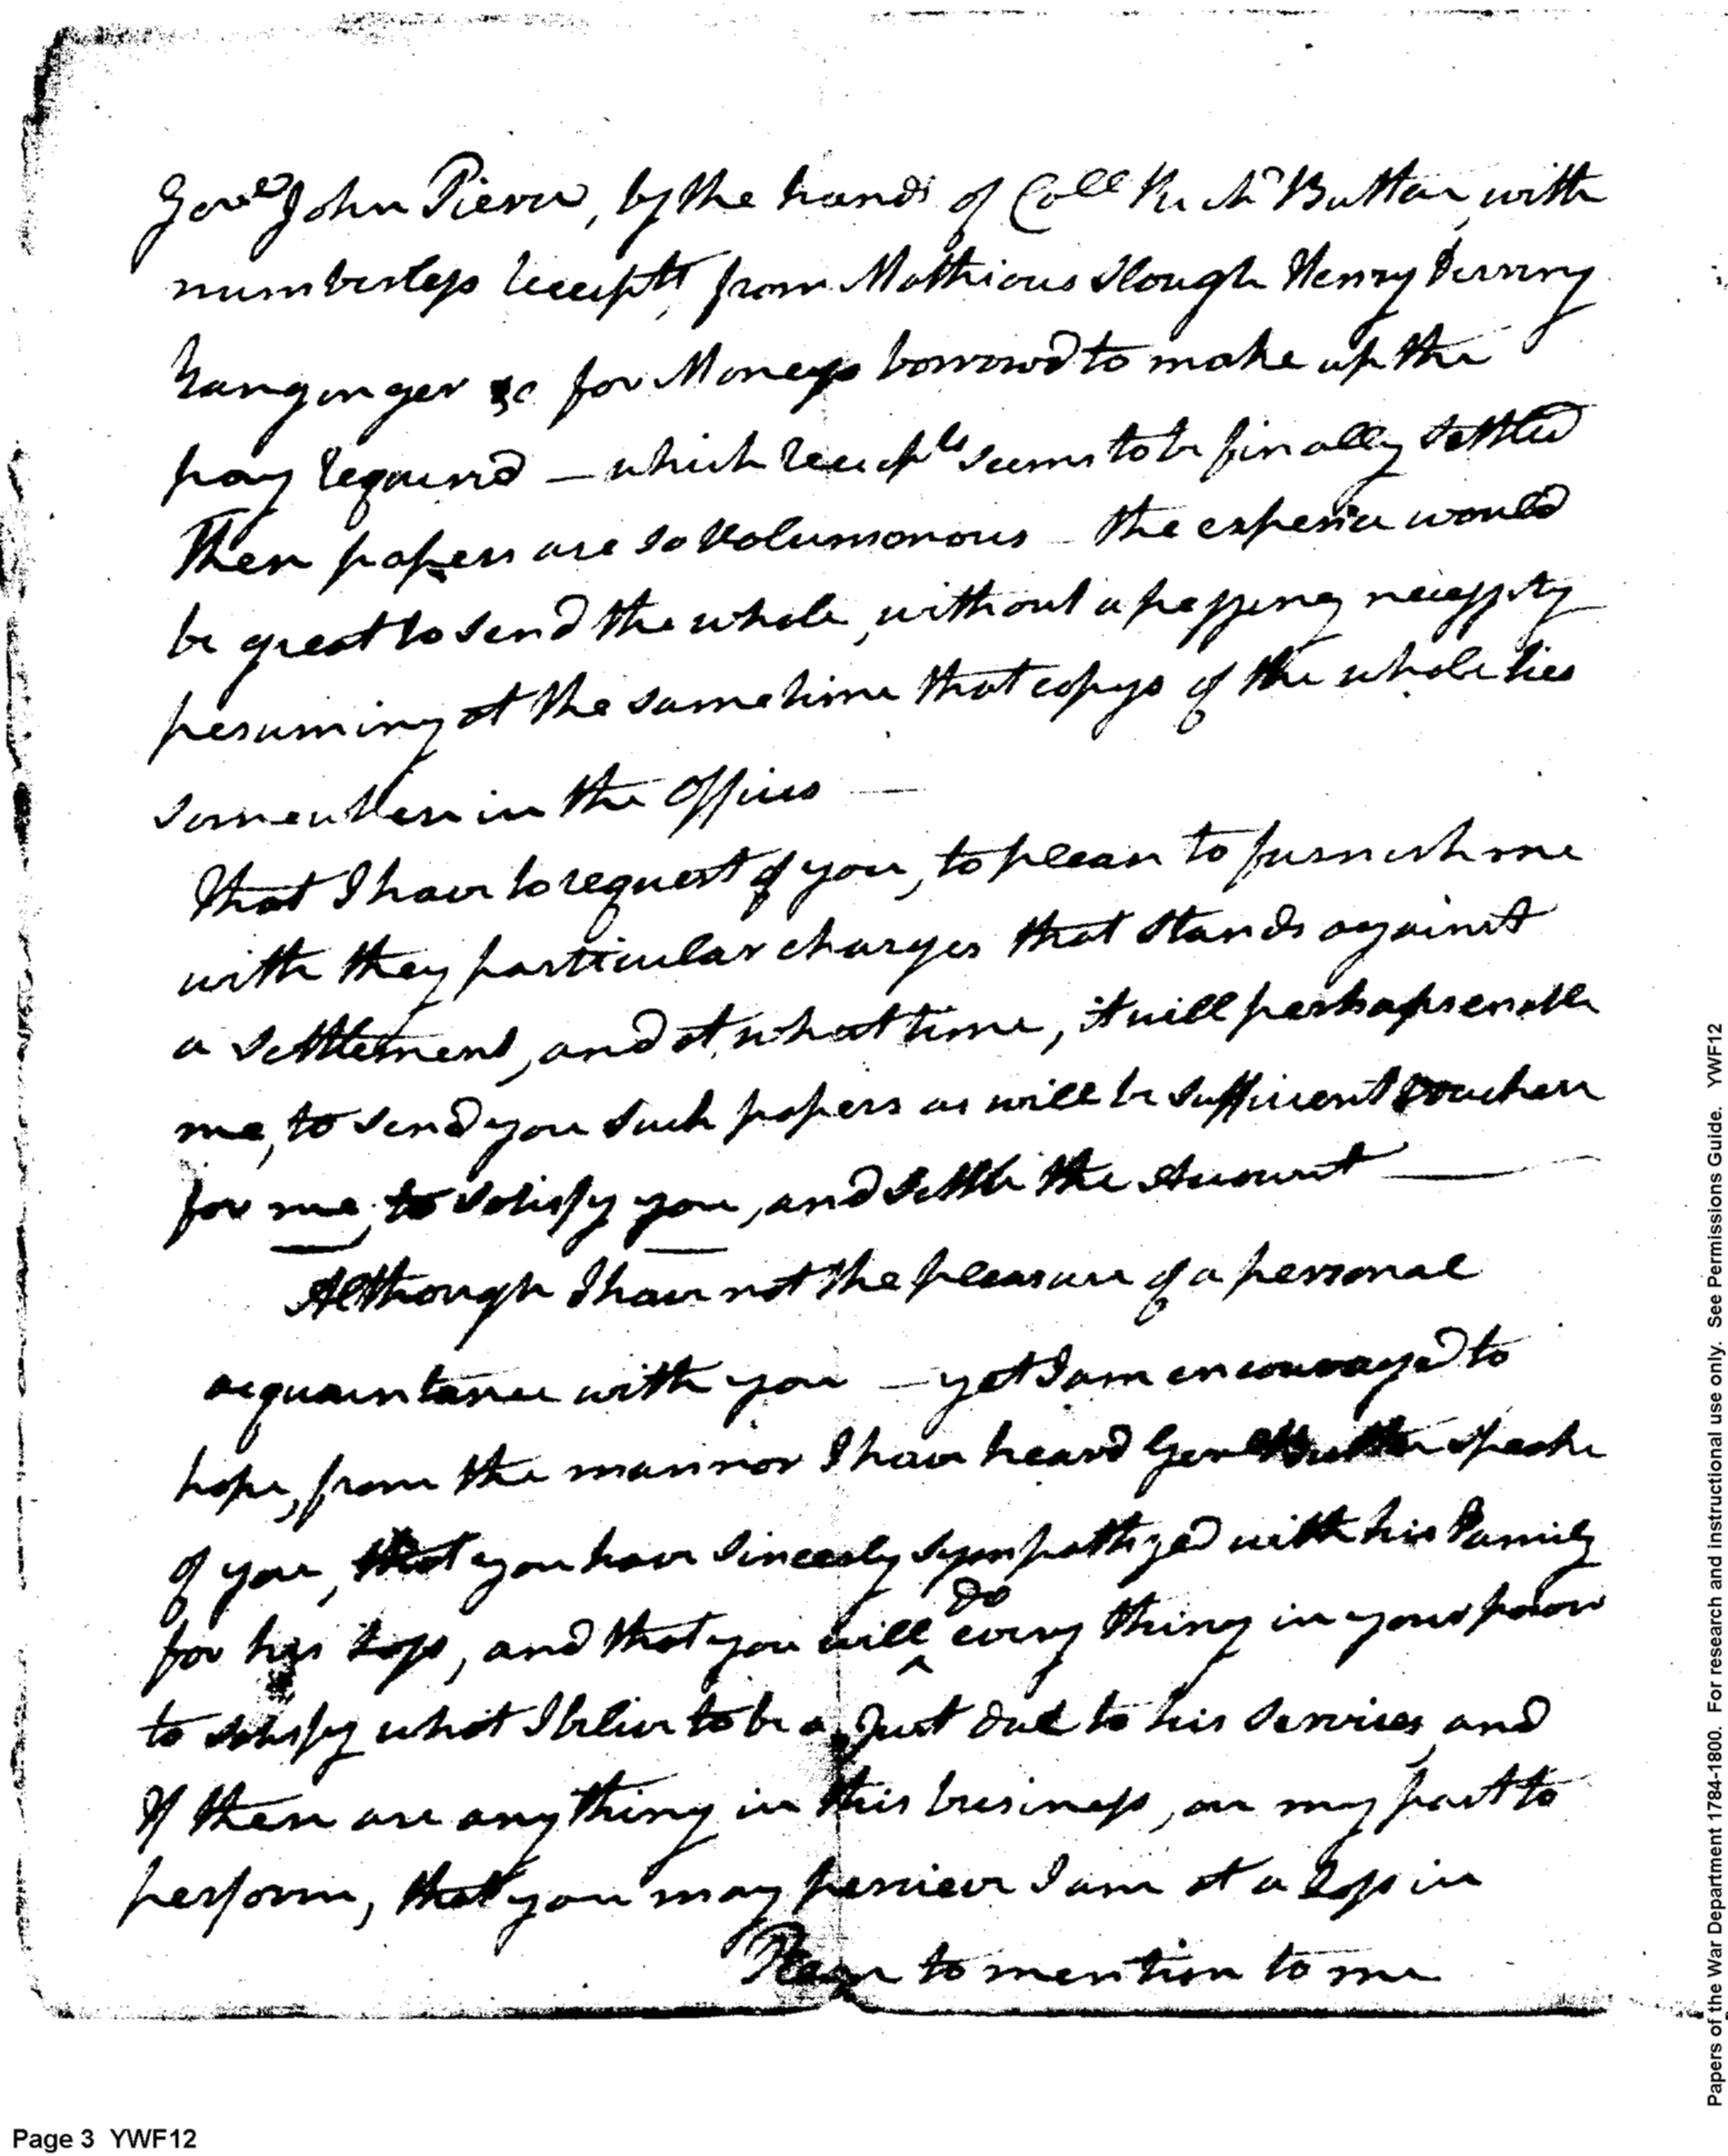 John Pierce, by the hands of Coll Richd Buttar, with
numberless Receipts, from Mathious Slough Henry
&c for Moneys borrowd to make up the
pay Required — which Receipts seems to be finally Settled
These papers are so Volumonous – the expence would
be great to send the whole, without a pressing necessity
presuming at the same time that copys of the whole lies
somewhere in the offices —
That I have to request of you, to please to furnish me
with they particular charges that stands against
a Settlement, and at what time, it will perhaps enable
me, to send you such papers as will be sufficient Vouchers
for me, to satisfy you, and settle the Account —
Although I have not the pleasure of a personal
acquaintance with you – yet I am encouraged to
hope, from the mannor I have heard Genl Butler speake
of you, that you have sincerly sympathized with his Family
for his loss, and that you will ^do every thing in your power
to satisfy what I belive to be a Just due to his Services, and
If there are any thing in this business, on my part to
perform, that you may perciere I am at a loss in
Please to mention to me
Page 3 YWF12
Papers of the War Department 1784-1800. For research and instructional use only. See Permissions Guide. YWF12